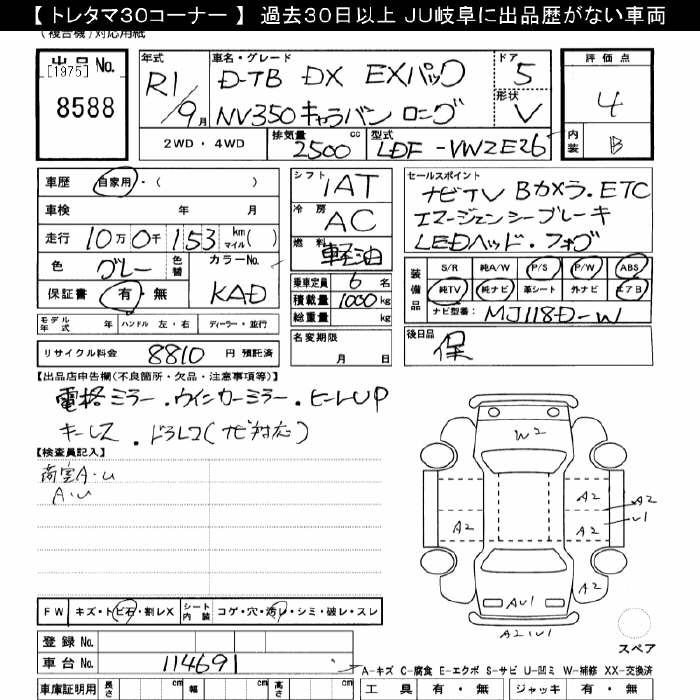 【 トレタマ30コーナー 】 過去30日以上 JU岐阜に出品歴がない車両
(複合機)対応用紙
出品No. [1975] 8588
年式 R1/9月
車名・グレード D-TB DX EXパック
NV350キャラバン ロング
ドア 5
形状 V
評価点 4
内装 B
2WD・4WD
排気量 2500 cc
型式 LDF-VW2E26
車歴 自家用・( )
車検 年 月
走行 10万0千153 km マイル( )
色 グレー 色替
カラーNo. KAD
保証書 有・無
シフト IAT
冷房 AC
燃料 軽油
乗車定員 6名
積載量 1000kg
総重量 kg
セールスポイント
ナビTV Bカメラ.ETC
エマージェンシーブレーキ
LEDヘッド.フォグ
装備品 S/R 純A/W P/S P/W ABS
純TV 純ナビ 革シート 外ナビ エアB
ナビ型番: MJ118D-W
モデル年式 年 ハンドル 左・右 ディーラー・並行
リサイクル料金 8810 円 預託済
名変期限 月 日
後日品 保
【出品店申告欄(不良箇所・欠品・注意事項等)】
電格ミラー.ウインカーミラー.ヒートUP
キーレス.ドラレコ(ナビ対応)
【検査員記入】
荷室A・U
A・U
W2
A2
A2
A2
A2
U1
A2
AU1
A2 U1
スペア
FW キズ・トビ石・割レX シート内装 コゲ・穴・汚レ・シミ・破レ・スレ
登録No.
車台No. 114691
A-キズ C-腐食 E-エクボ S-サビ U-凹ミ W-補修 XX-交換済
車庫証明用 長さ cm 幅 cm 高さ cm
工具 有・無 ジャッキ 有・無